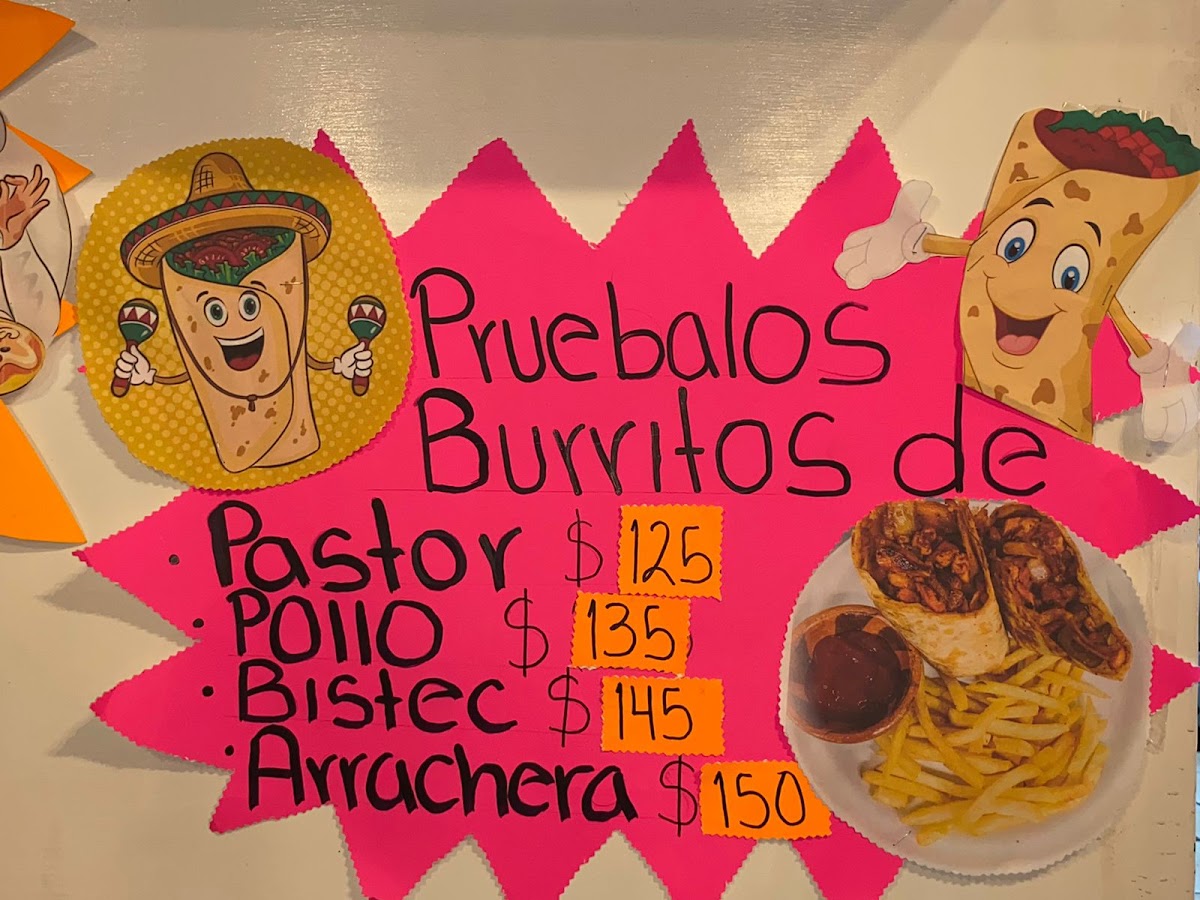 Pruebalos
Burritos de
• Pastor $ 125
• Pollo $ 135
• Bistec $ 145
• Arrachera $ 150